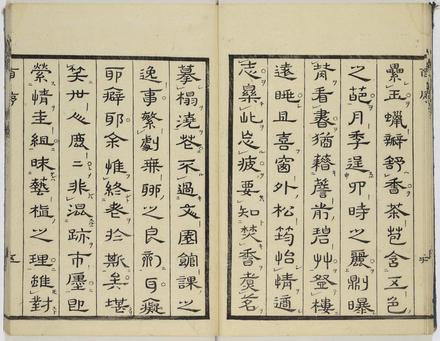 纍玉蠟瓣舒香茶苞含五色
之葩月季逞四時之麗則曝
背看書猶藉簷前碧艸登樓
遠眺且喜窗外松筠怡情適
志樂此忘疲要知焚香煮茗
摹榻澆花不過文園館課之
逸事繁劇無聊之良劑耳癡
耶癖耶余惟終老於斯矣堪
笑世人鹿二非混跡市廛即
縈情圭組昧藝植之理雖對